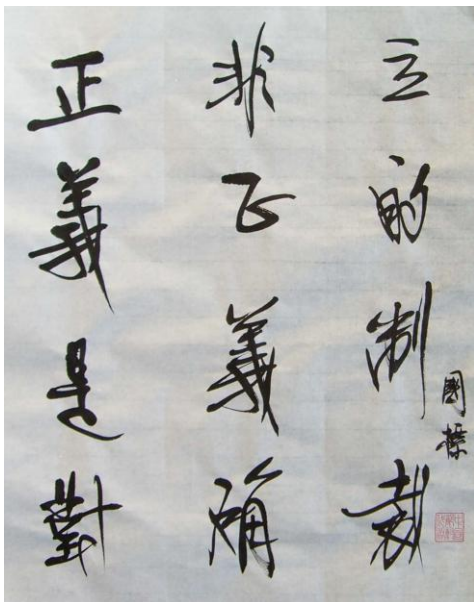 正義是對
非正義确
立的制裁
國標